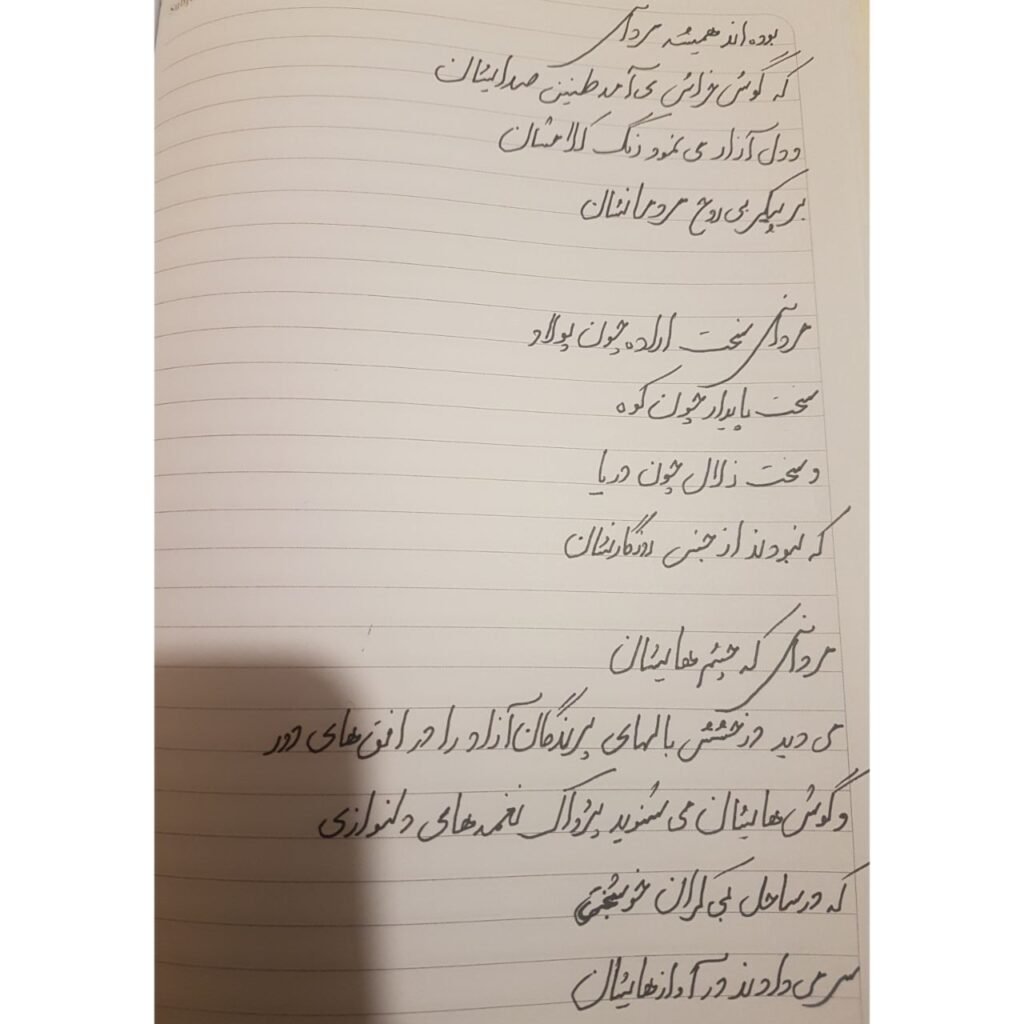 بوده اند همیشه مردانی
که گوش خراش می آمد طنین صدایشان
و دل آزار می نمود زنگ کلامشان
بر پیکر بی روح مردمانشان
مردانی سخت اراده چون پولاد
سخت پایدار چون کوه
و سخت زلال چون دریا
که نبودند از جنس روزگارشان
مردانی که چشم هایشان
می دید درخشش بالهای پرندگان آزاد را در افق های دور
و گوش هایشان می شنوید پژواک نغمه های دلنوازی
که در ساحل بی کران خوشبختی
سر می دادند در آوازهایشان